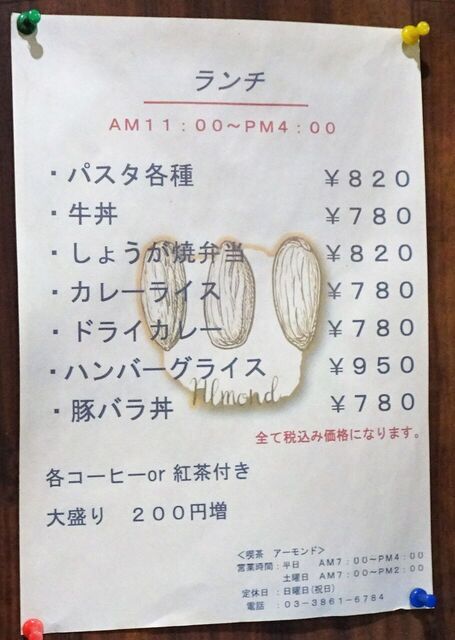 ランチ
AM11:00～PM4:00
・パスタ各種 ￥820
・牛丼 ￥780
・しょうが焼弁当 ￥820
・カレーライス ￥780
・ドライカレー ￥780
・ハンバーグライス ￥950
・豚バラ丼 ￥780
Almond
全て税込み価格になります。
各コーヒーor 紅茶付き
大盛り 200円増
＜喫茶 アーモンド＞
営業時間：平日 AM7：00～PM4：00
土曜日 AM7：00～PM2：00
定休日 ：日曜日(祝日)
電話 ：03-3861-6784